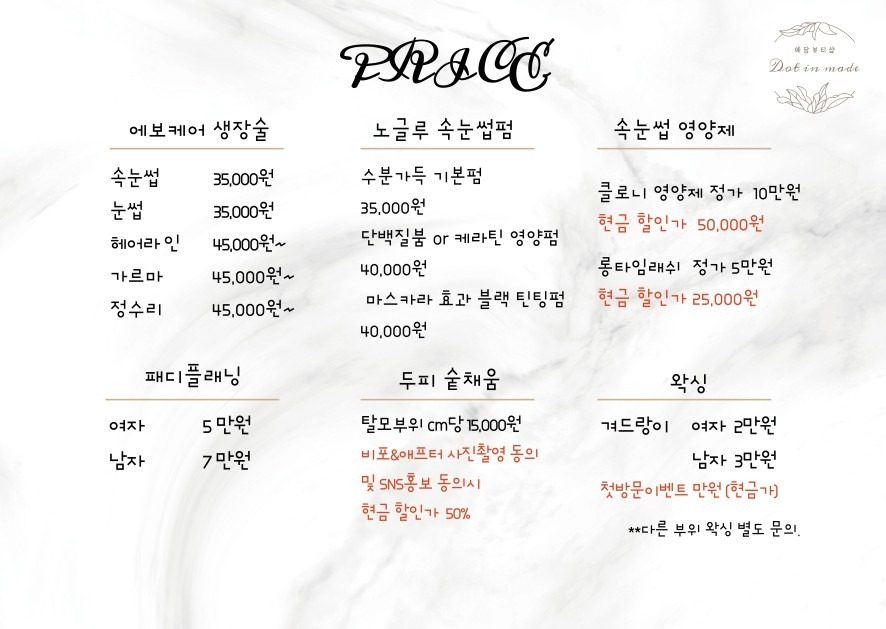 PRICE
해담뷰티샵
Dot in made
에보케어 생장술
속눈썹 35,000원
눈썹 35,000원
헤어라인 45,000원~
가르마 45,000원~
정수리 45,000원~
노글루 속눈썹펌
수분가득 기본펌
35,000원
단백질붐 or 케라틴 영양펌
40,000원
마스카라 효과 블랙 틴팅펌
40,000원
속눈썹 영양제
클로니 영양제 정가 10만원
현금 할인가 50,000원
롱타임래쉬 정가 5만원
현금 할인가 25,000원
패디플래닝
여자 5 만원
남자 7 만원
두피 숱채움
탈모부위 cm당 15,000원
비포&애프터 사진촬영 동의
및 SNS홍보 동의시
현금 할인가 50%
왁싱
겨드랑이 여자 2만원
남자 3만원
첫방문이벤트 만원 (현금가)
**다른 부위 왁싱 별도 문의.